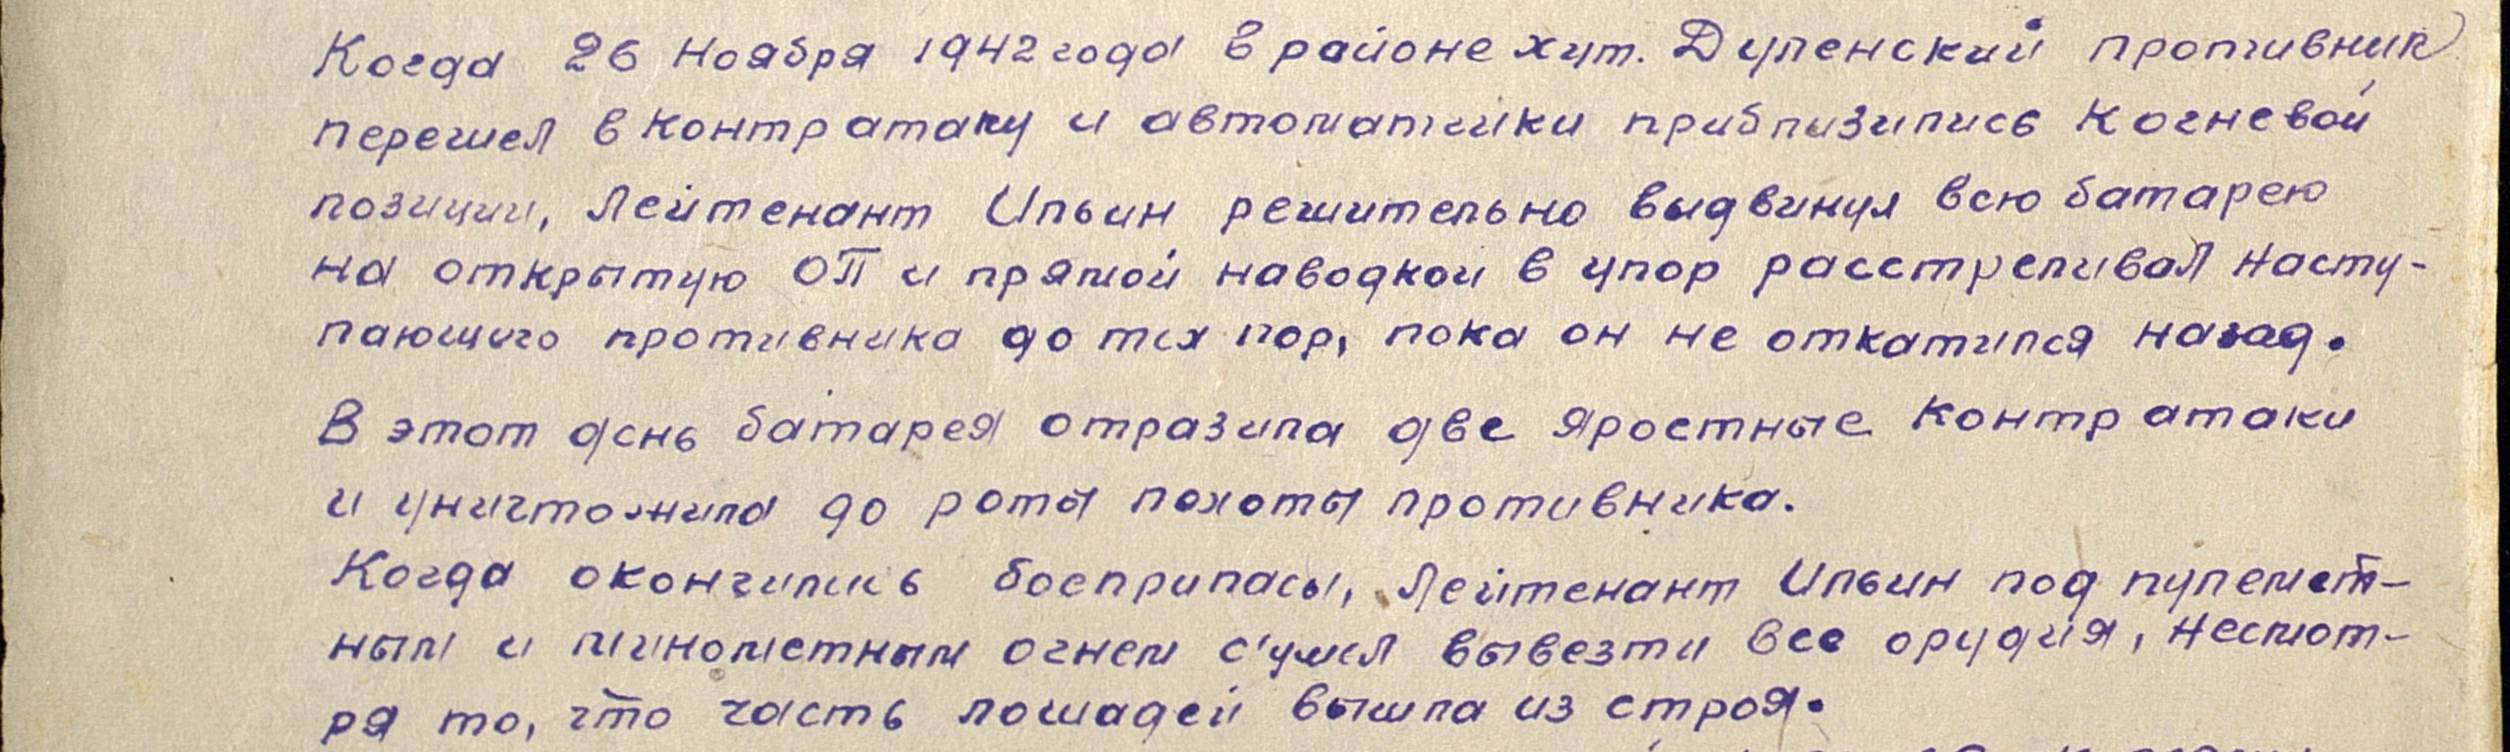 Когда 26 ноября 1942 года в районе хут. Дупенский противник
перешел в контратаку и автоматчики приблизились к огневой
позиции, Лейтенант Ильин решительно выдвинул всю батарею
на открытую ОП и прямой наводкой в упор расстреливал насту-
пающего противника до тех пор, пока он не откатился назад.
В этот день батарея отразила две яростные контратаки
и уничтожила до роты пехоты противника.
Когда окончились боеприпасы, Лейтенант Ильин под пулемет-
ным и минометным огнем с'умел вывезти все орудия, несмот-
ря то, что часть лошадей вышла из строя.